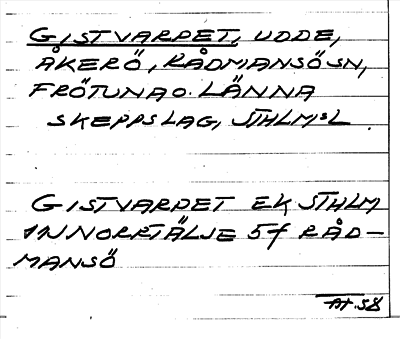 GISTVARPET, UDDE,
ÅKERÖ, RÅDMANSÖ SN,
FRÖTUNA O. LÄNNA
SKEPPSLAG, STHLMS L.
GISTVARPET EK STHLM
11 NORRTÄLJE 5f RÅD-
MANSÖ